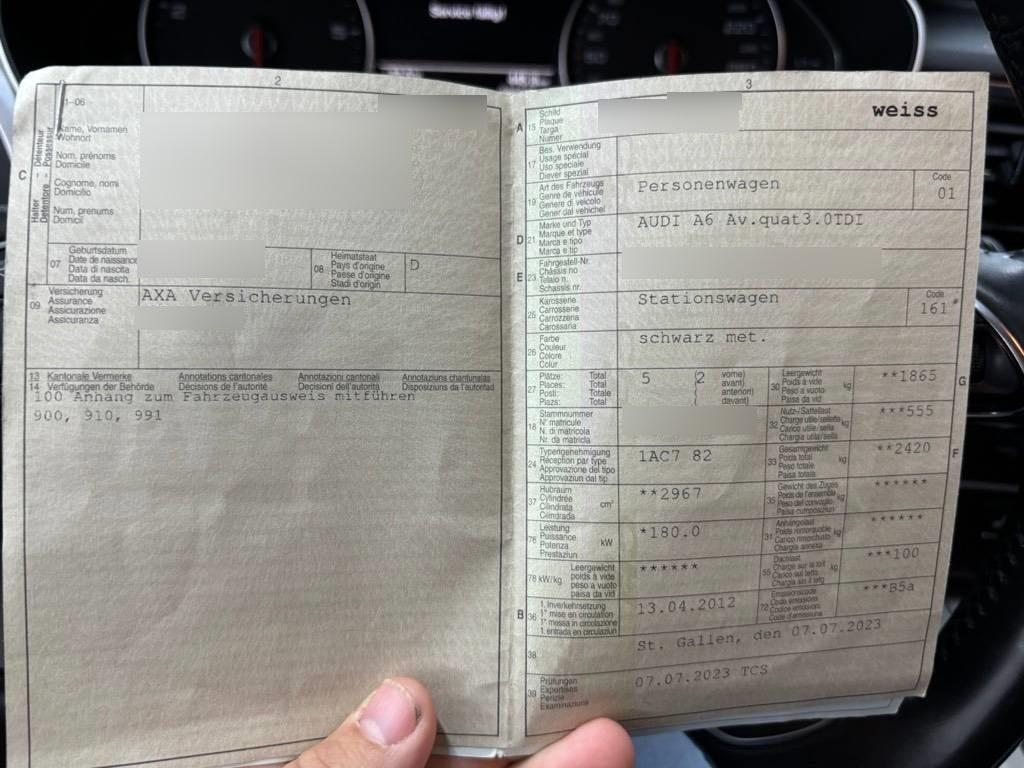 Service fällig!
2
1-06
Halter - Détenteur
Detentore - Possessur
C
Name, Vornamen
Wohnort
Nom, prénoms
Domicile
Cognome, nomi
Domicilio
Num, prenums
Domicil
07
Geburtsdatum
Date de naissance
Data di nascita
Data da nasch.
08
Heimatstaat
Pays d'origine
Paese d'origine
Stadi d'origin
D
09
Versicherung
Assurance
Assicurazione
Assicuranza
AXA Versicherungen
13 Kantonale Vermerke Annotations cantonales Annotazioni cantonali Annotaziuns chantunalas
14 Verfügungen der Behörde Décisions de l'autorité Decisioni dell'autorità Disposiziuns da l'autoritad
100 Anhang zum Fahrzeugausweis mitführen
900, 910, 991
3
A 15
Schild
Plaque
Targa
Numer
weiss
17
Bes. Verwendung
Usage spécial
Uso speciale
Diever spezial
19
Art des Fahrzeugs
Genre de véhicule
Genere di veicolo
Gener dal vehichel
Personenwagen
Code
01
D 21
Marke und Typ
Marque et type
Marca e tipo
Marca e tip
AUDI A6 Av.quat3.0TDI
E 23
Fahrgestell-Nr.
Châssis no
Telaio n.
Schassis nr.
25
Karosserie
Carrosserie
Carrozzeria
Carossaria
Stationswagen
Code
161*
26
Farbe
Couleur
Colore
Colur
schwarz met.
27
Plätze: Total
Places: Total
Posti: Totale
Plazs: Total
5 (2 vorne)
avant)
anteriori)
davant)
30
Leergewicht
Poids à vide
Peso a vuoto
Paisa da vid
kg
**1865
G
18
Stammnummer
N° matricule
N. di matricola
Nr. da matricla
32
Nutz-/Sattellast
Charge utile/sellette
Carico utile/sella
Chargia utila/sella
kg
***555
24
Typengenehmigung
Réception par type
Approvazione del tipo
Approvaziun dal tip
1AC7 82
33
Gesamtgewicht
Poids total
Peso totale
Paisa totala
kg
**2420
F
37
Hubraum
Cylindrée
Cilindrata
Cilindrada
cm³
**2967
35
Gewicht des Zuges
Poids de l'ensemble
Peso del convoglio
Paisa cumposiziun
kg
******
76
Leistung
Puissance
Potenza
Prestaziun
kW
*180.0
31
Anhängelast
Poids remorquable
Carico rimorchiato
Chargia annexa
kg
******
78 kW/kg
Leergewicht
poids à vide
peso a vuoto
paisa da vid
******
55
Dachlast
Charge sur le toit
Carico sul tetto
Chargia sin il tetg
kg
***100
B 36
1. Inverkehrsetzung
1re mise en circulation
1a messa in circolazione
1. entrada en circulaziun
13.04.2012
72
Emissionscode
Code émissions
Codice emissioni
Code d'emissiuns
***B5a
38
St. Gallen, den 07.07.2023
39
Prüfungen
Expertises
Perizie
Examinaziuns
07.07.2023 TCS